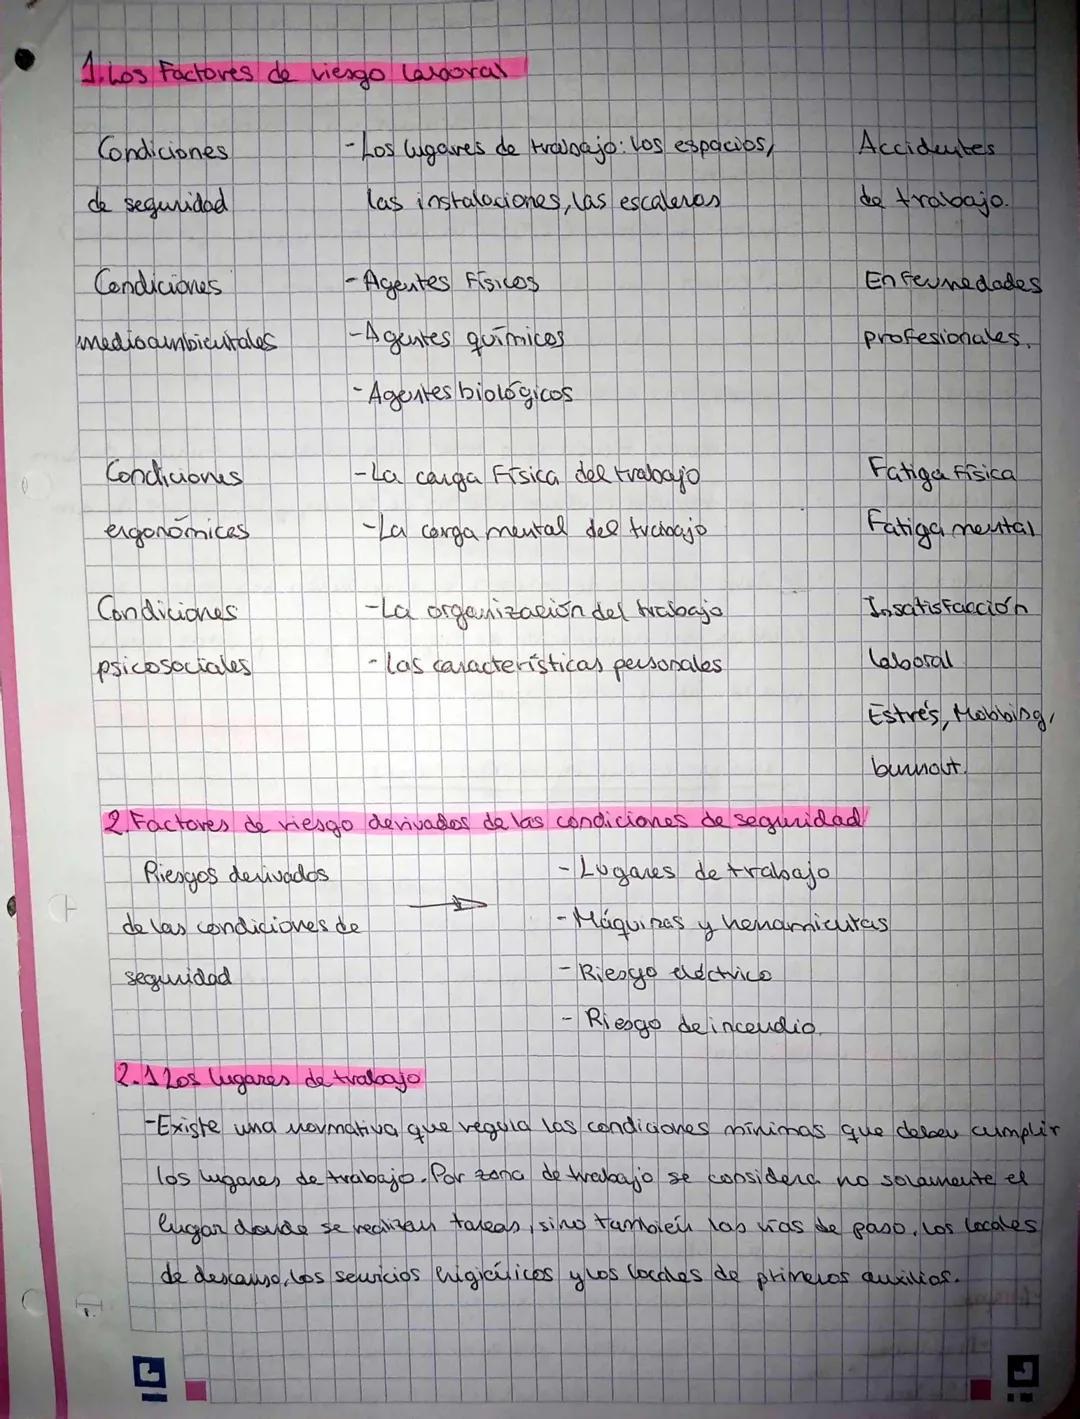 1. Los Factores de riesgo laboral
Condiciones - Los lugares de trabajo: los espacios, Accidentes
de seguridad las instalaciones, las escaleras de trabajo.
Condiciones - Agentes Físicos Enfermedades
medioambientales - Agentes químicos profesionales.
- Agentes biológicos
Condiciones - La carga Física del trabajo Fatiga física
ergonómicas - La carga mental del trabajo Fatiga mental
Condiciones - La organización del trabajo Insatisfacción
psicosociales - las características personales laboral
Estrés, Mobbing,
burnout.
2. Factores de riesgo derivados de las condiciones de seguridad
Riesgos derivados - Lugares de trabajo
de las condiciones de → - Máquinas y herramientas
seguridad - Riesgo eléctrico
- Riesgo de incendio.
2.1 Los lugares de trabajo
- Existe una normativa que regula las condiciones mínimas que deben cumplir
los lugares de trabajo. Por zona de trabajo se considera no solamente el
lugar donde se realizan tareas, sino también las vías de paso, los locales
de descanso, los servicios higiénicos y los locales de primeros auxilios.